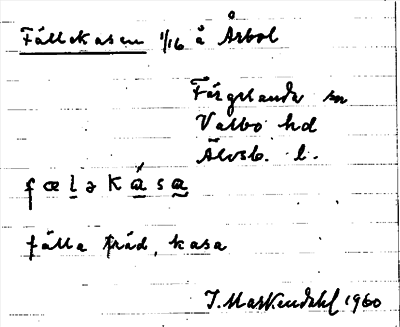 Fällekasen 1/16 å Årbol
Färgelanda sn
Valbo hd
Älvsb. l.
fœlə kása
fälla träd, kasa
J. Markendahl 1960